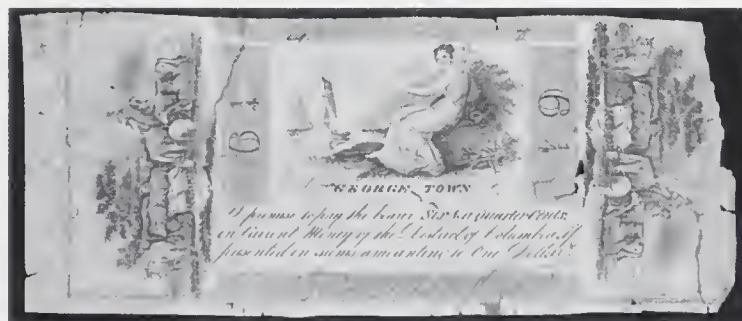 6¼
6¼
GEORGE TOWN
I promise to pay the bearer Six & a quarter Cents,
in Current Money of the District of Columbia, if
presented in sums amounting to One Dollar.